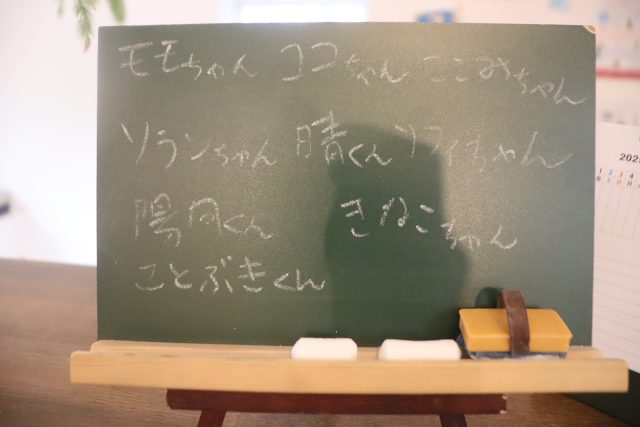 モモちゃん ココちゃん ここみちゃん
ソランちゃん 晴くん ソフィちゃん
陽向くん きなこちゃん
ことぶきくん
202